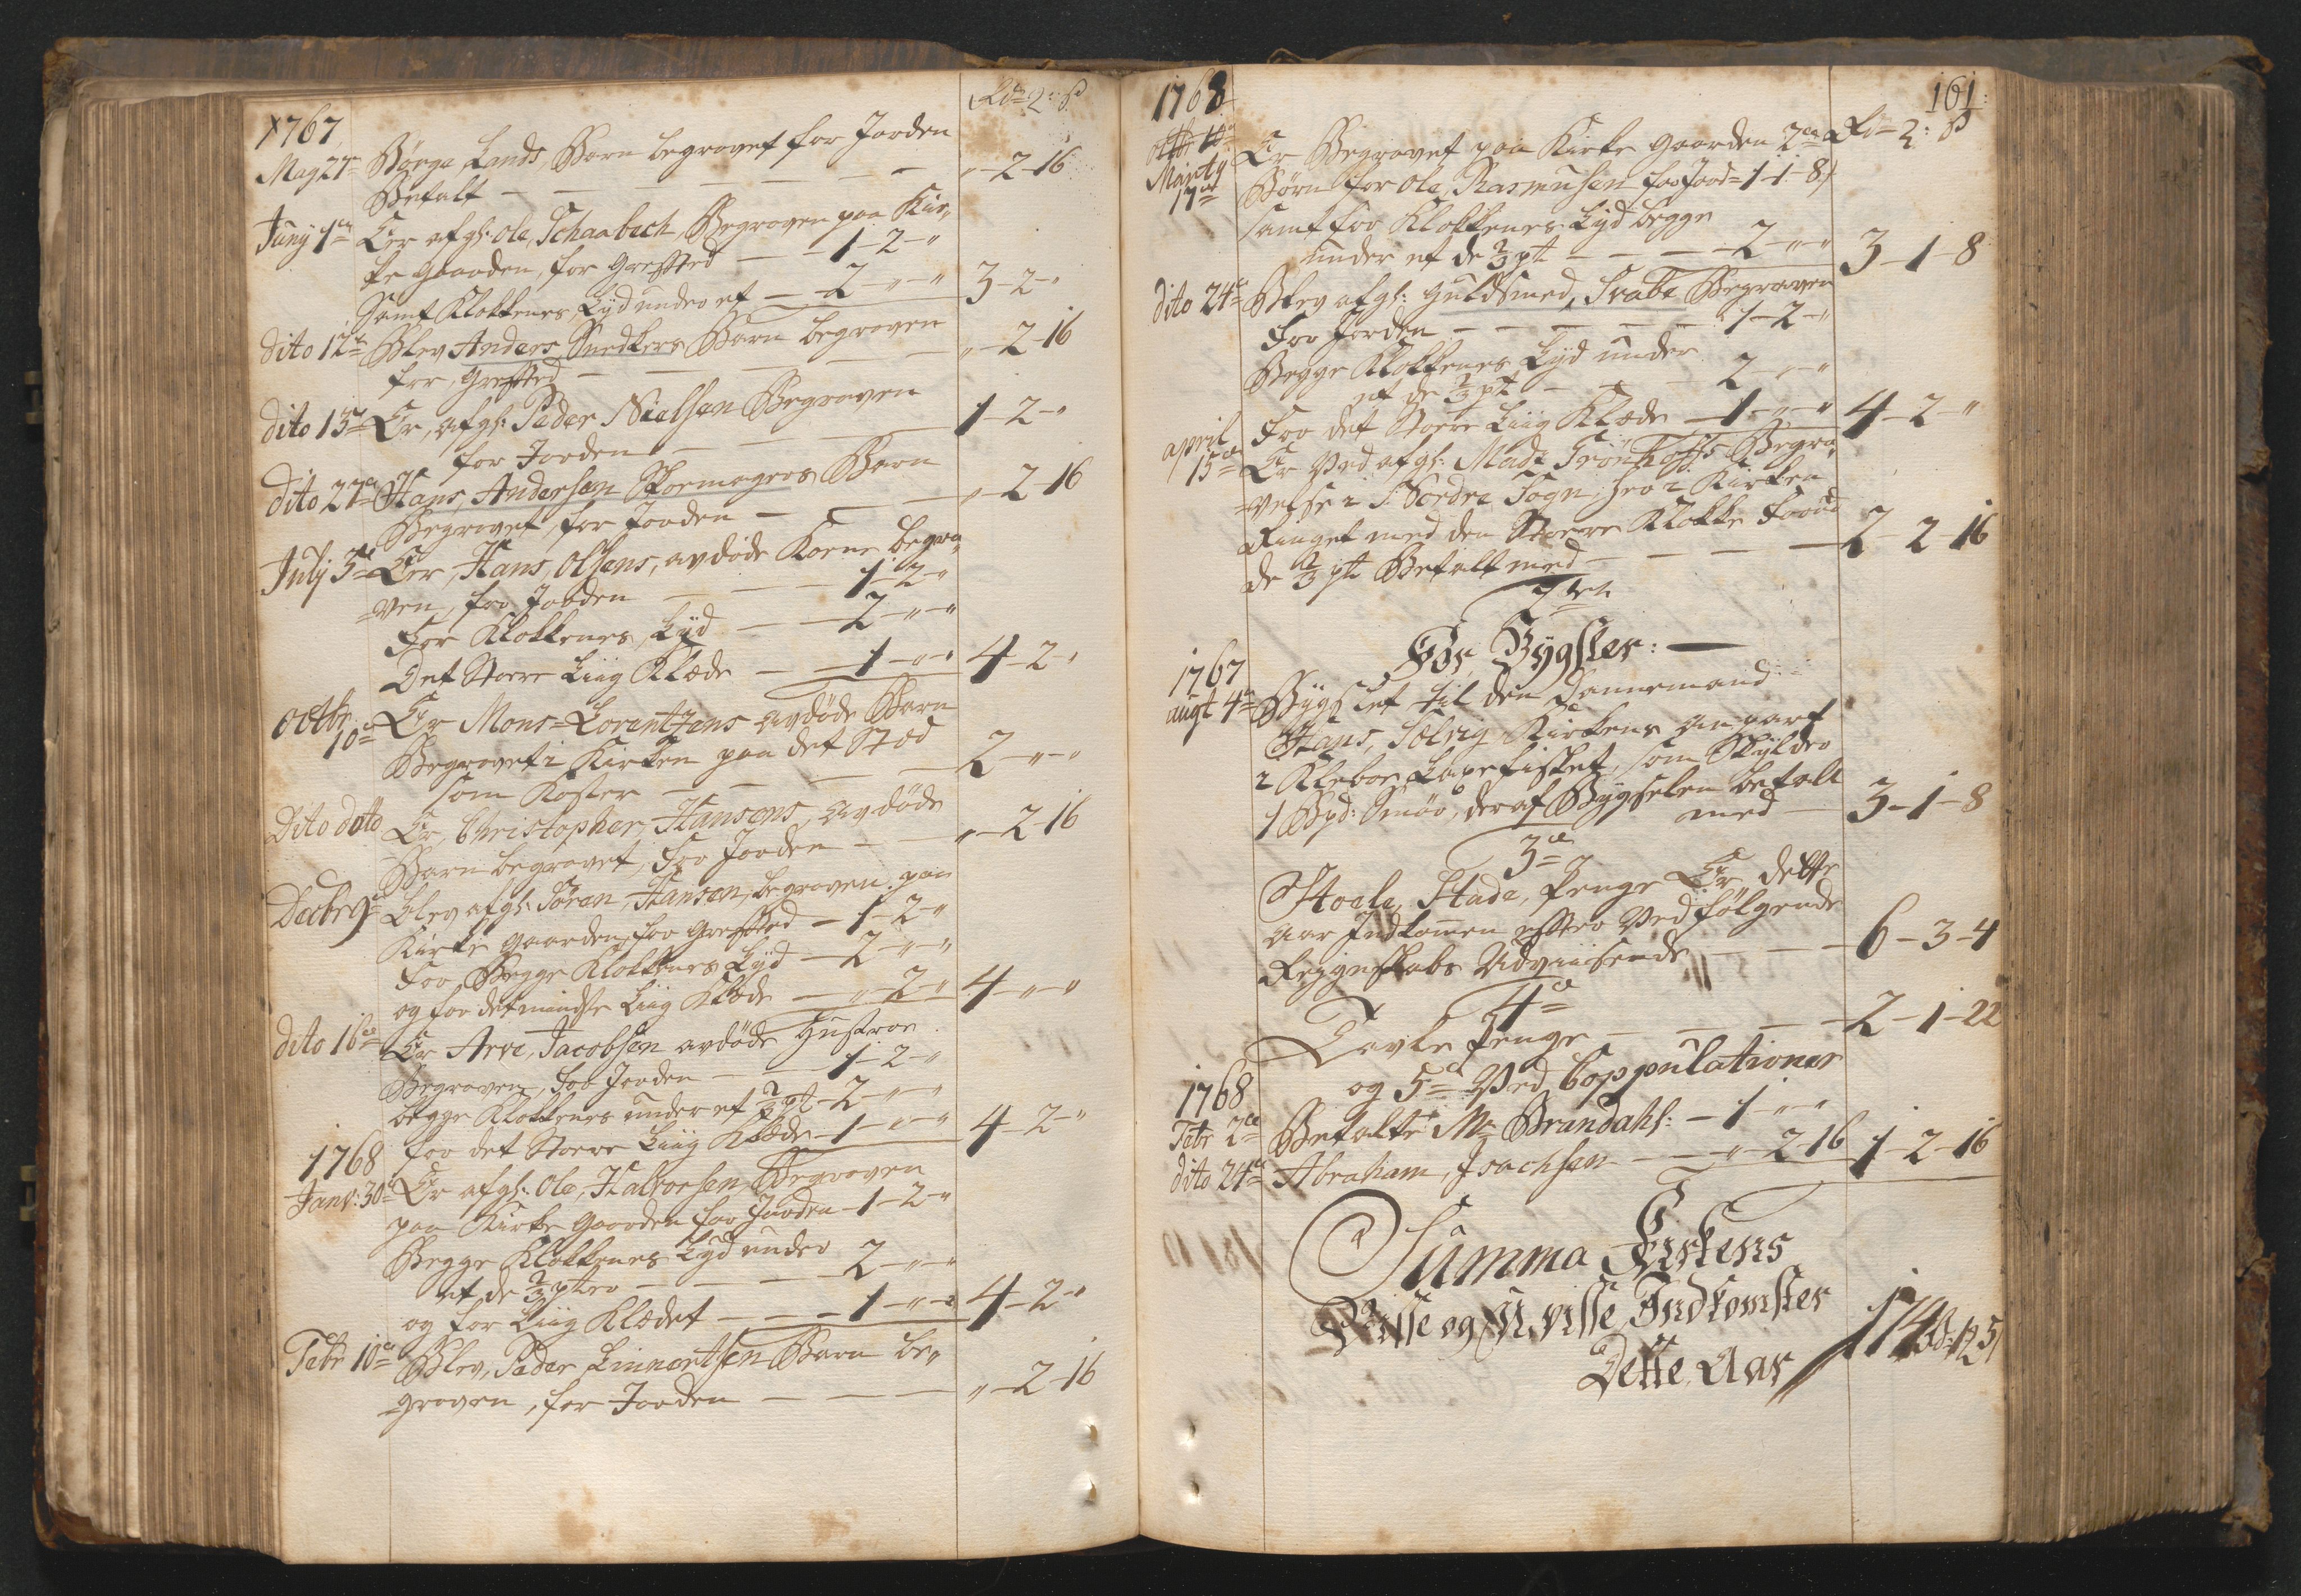 Rd 2: ß
1767
May 27 Børge Lands Barn begravet for Jorden
Betalt – – – – – – „-2-16
Juny 1 Er afg: Ole Schaabech, Begraven paa Kir„
ke gaarden, for – 1-2-„
Samt Klokkenes Lyd under et – 2-„-„ 3-2-„
dito 12 Blev Anders Snedkers Barn begraven
for – – – „-2-16
dito 13 Er, afg: Peder Nielsen Begraven
for Jorden – – 1-2-„
dito 27 Hans, Andersen Skoemagers Barn
Begravet, for Jorden – – „-2-16
July 5 Er, Hans, Olsens, avdøde Kone begra„
ven, for Jorden – 1-2-„
For Klokkenes, Lyd – 2-„-„
Det Storre Liig Klæde – 1-„-„ 4-2-„
Octbr 10 Er Mons=Lorentzens avdøde Barn
Begravet i Kirken paa det Stæd
som Koster – – – 2-„-„
Dito dito Er, Christopher, Hansens, avdøde
Barn begravet, for Jorden – „-2-16
Decbr 9 blev afg: Søren, Hansen, begraven paa
Kirke gaarden, for – 1-2-„
For Begge Klokkenes Lyd – 2-„-„
og for det mindste Liig Klæde – „-2-„ 4-„-„
dito 16 Er Arve, Jacobsen avdøde Hustroe
Begraven, for Jorden – 1-2-„
begge Klokkenes under et 2/3 pt – 2-„-„
for det Storre Liig Klæde – 1-„-„ 4-2-„
1768
Janv: 30 Er afg: Ole, Halvorsen, Begraven
paa Kirke Gaarden for Jorden – 1-2-„
Begge Klokkenes Lyd under
et de 2/3 – – – 2-„-„
og for Liig Klædet – – 1-„-„ 4-2-„
Febr 10 Blev, Peder Linnertsen Barn be„
graven, for Jorden – – – „-2-16
161:
1768 Rd 2: ß
Marty 17 Er Begravet paa Kirke Gaarden 2
Børn for Ole, Rasmusen for Jord=1-1-8
samt for Klokkenes Lyd begge
under et de 2/3 pt – – – 2-„-„ 3-1-8
dito 24 Blev afg: Guldsmed, Svabe Begraven
For Jorden – – – – – 1-2-„
Begge Klokkenes Lyd under
et de 2/3 pt – – – 2-„-„
For det Storre Liig Klæde – 1-„-„ 4-2-„
april 15 Er Ved afg: Mad: Grönhoffs Begra„
velse i Sogn, her i Kirken
Ringet med den Storre Klokke
de 2/3 pt Betalt med – – – – 2-2-16
For Bygsler: –
1767
augt 4 Bygslet til den Dannemand
Hans, Solvig Kirkens anpart
i Kleboe Laxefisket, som Skylder
1 Bpd: Smør, deraf Bygselen betalt
med – 3-1-8
3
Stoele, Stade, Penge Er dette
Aar Indkomen efter Ved følgende
Regnskabs Udviisende – – – 6-3-4
4
Tavle Penge – – – – 2-1-22
og 5 Ved Coppulationer
1768
Febr 2 Betalte Mr Brandahl: – 1-„-„
dito 24 Abraham, Joachsen – „-2-16 1-2-16
Summa Kirkens
Visse og Uvisse Indkomster
Dette Aar